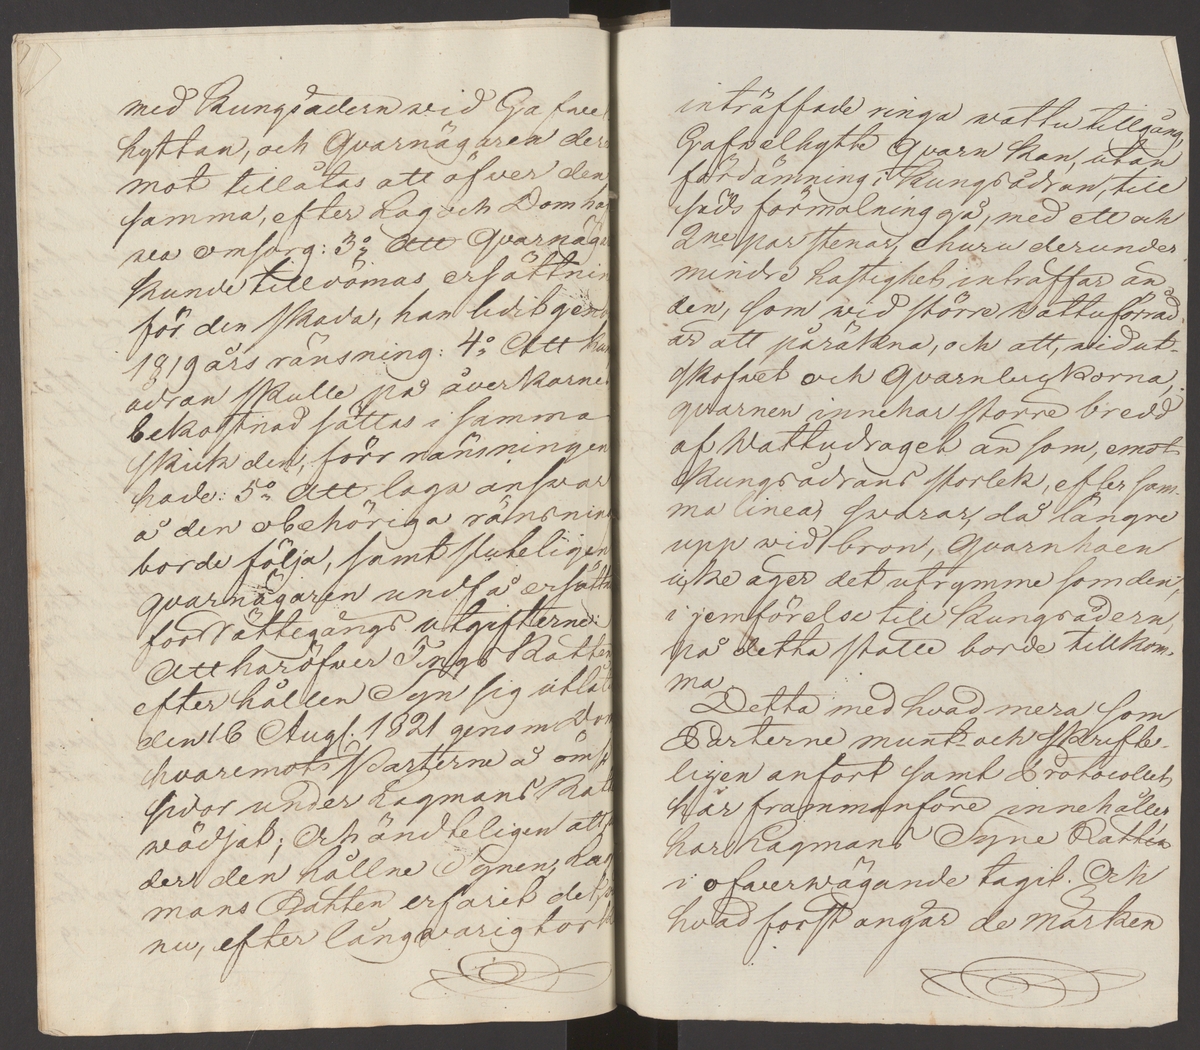 med Kungsådern wid Gafvel
hyttan, och Qvarnägaren der
mot tillåtas att öfver den
samma, efter Lag och Domhaf
vea omsorg: 3o Att Qvarnäga
kunde tilldömas ersättnin
för den skada, han lidit geno
1819 års ränsning: 4o Att Kun
ådran skulle på åverkarnes
bekostnad sättas i samma
skick den, förr ränsningen
hade: 5o Att laga answar
å den obehöriga ränsnin
borde följa, samt sluteligen
Qvarnägaren undfå ersättn
for Rättegångs utgifterne:
Att häröfver Tings Rätten
efter hållen Syn sig utlåt
den 16 Augs. 1821 genom Dom
hvaremot Parterne å ömse
sidor under Lagmans Rätt
wädjat; och ändteligen att
der den hållne Synen, Lag
mans Rätten erfarit det
nu, efter långwarig tork
inträffade ringa wattu tillgång,
Gafvelhytte Qvarn kan, utan
fördämning i Kungsådran, till
säds förmalning gå, med ett och
2ne par stenar, ehuru derunder
mindre hastighet inträffar än
den, som wid större wattuförråd
är att påräkna, och att, wid ut-
skofvet och Qvarnluckorna,
qvarnen innehar större bredd
af Wattudraget än som, emot
Kungsådrans storlek, efter sam-
ma linea, swarar, då längre
upp wid bron, Qvarnhoen
icke äger det utrymme som den,
i jemförelse till Kungsådern,
på detta ställe borde tillkom-
ma.
Detta med hvad mera som
Parterne munt- och skrifte-
ligen anfört samt Protocollet
här frammanföre innehåller
har Lagmans Syne Rätten
i öfverwägande tagit. Och
hvad först angår de märken